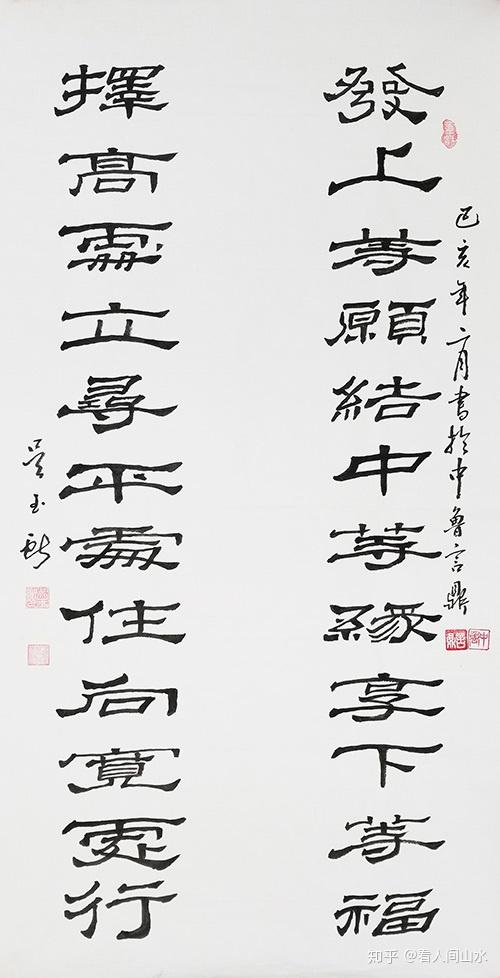 己亥年二月書於中魯言鼎
發上等願結中等緣享下等福
擇高處立尋平處住向寬處行
吳玉
知乎 @看人间山水